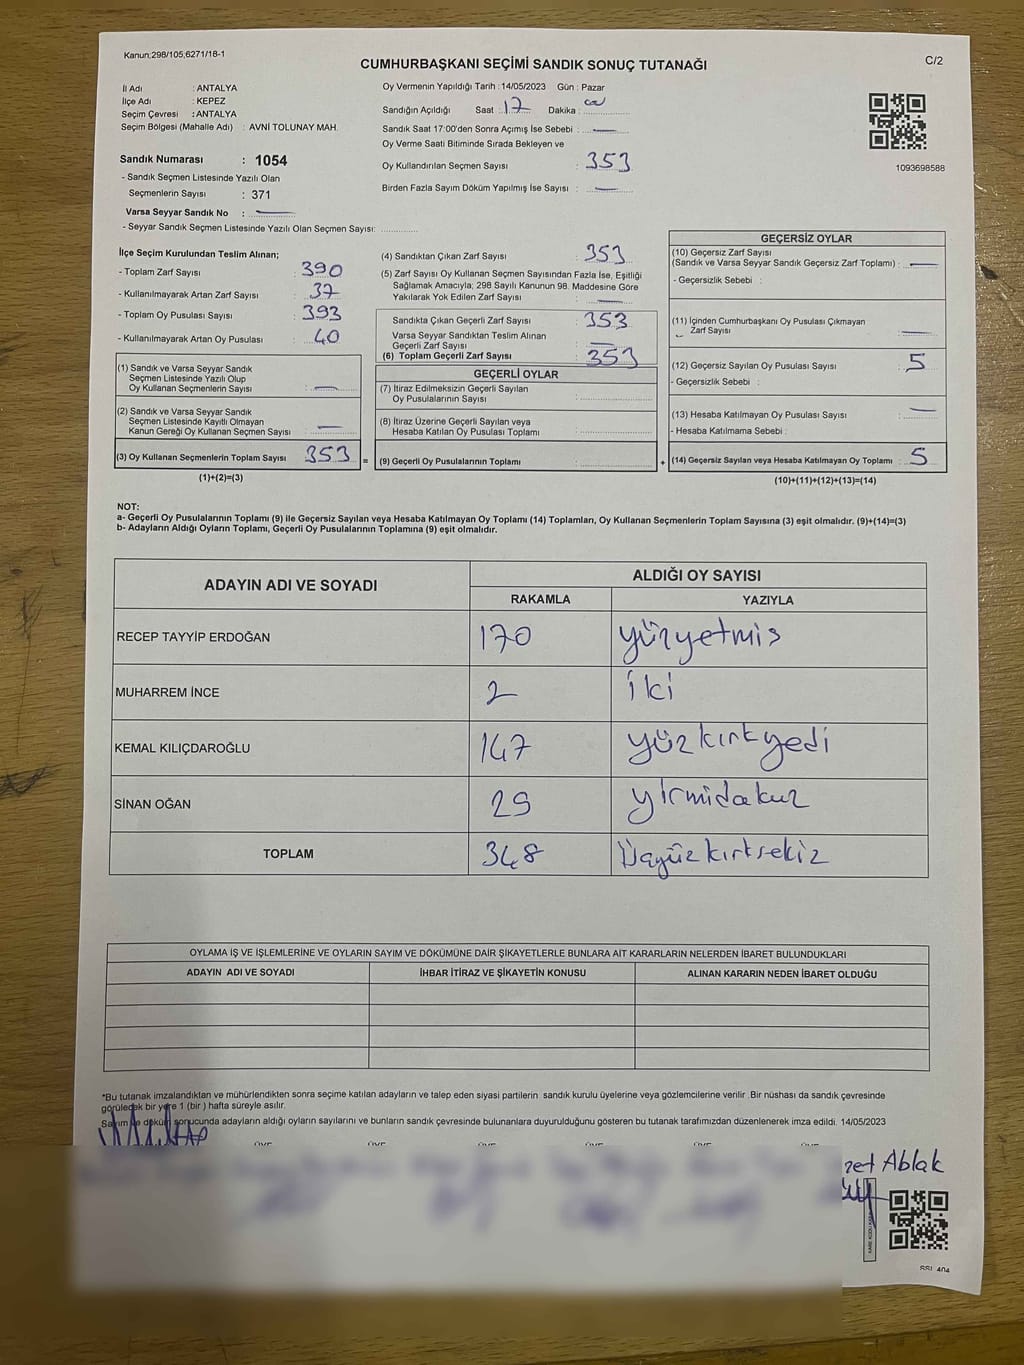 Kanun;298/105;6271/18-1
CUMHURBAŞKANI SEÇİMİ SANDIK SONUÇ TUTANAĞI
C/2
İl Adı : ANTALYA
İlçe Adı : KEPEZ
Seçim Çevresi : ANTALYA
Seçim Bölgesi (Mahalle Adı) : AVNİ TOLUNAY MAH.
Sandık Numarası : 1054
- Sandık Seçmen Listesinde Yazılı Olan
Seçmenlerin Sayısı : 371
Varsa Seyyar Sandık No :
- Seyyar Sandık Seçmen Listesinde Yazılı Olan Seçmen Sayısı:
Oy Vermenin Yapıldığı Tarih : 14/05/2023 Gün : Pazar
Sandığın Açıldığı Saat : 17 Dakika :
Sandık Saat 17:00'den Sonra Açımış İse Sebebi :
Oy Verme Saati Bitiminde Sırada Bekleyen ve
Oy Kullandırılan Seçmen Sayısı : 353
Birden Fazla Sayım Döküm Yapılmış İse Sayısı :
1093698588
İlçe Seçim Kurulundan Teslim Alınan;
- Toplam Zarf Sayısı : 390
- Kullanılmayarak Artan Zarf Sayısı : 37
- Toplam Oy Pusulası Sayısı : 393
- Kullanılmayarak Artan Oy Pusulası : 40
(1) Sandık ve Varsa Seyyar Sandık
Seçmen Listesinde Yazılı Olup
Oy Kullanan Seçmenlerin Sayısı :
(2) Sandık ve Varsa Seyyar Sandık
Seçmen Listesinde Kayıtlı Olmayan
Kanun Gereği Oy Kullanan Seçmen Sayısı :
(3) Oy Kullanan Seçmenlerin Toplam Sayısı 353 =
(1)+(2)=(3)
(4) Sandıktan Çıkan Zarf Sayısı : 353
(5) Zarf Sayısı Oy Kullanan Seçmen Sayısından Fazla İse, Eşitliği
Sağlamak Amacıyla; 298 Sayılı Kanunun 98. Maddesine Göre
Yakılarak Yok Edilen Zarf Sayısı :
Sandıkta Çıkan Geçerli Zarf Sayısı : 353
Varsa Seyyar Sandıktan Teslim Alınan
Geçerli Zarf Sayısı :
(6) Toplam Geçerli Zarf Sayısı : 353
GEÇERLİ OYLAR
(7) İtiraz Edilmeksizin Geçerli Sayılan
Oy Pusulalarının Sayısı :
(8) İtiraz Üzerine Geçerli Sayılan veya
Hesaba Katılan Oy Pusulası Toplamı :
(9) Geçerli Oy Pusulalarının Toplamı : +
GEÇERSİZ OYLAR
(10) Geçersiz Zarf Sayısı
(Sandık ve Varsa Seyyar Sandık Geçersiz Zarf Toplamı) :
- Geçersizlik Sebebi :
(11) İçinden Cumhurbaşkanı Oy Pusulası Çıkmayan
Zarf Sayısı :
(12) Geçersiz Sayılan Oy Pusulası Sayısı : 5
- Geçersizlik Sebebi :
(13) Hesaba Katılmayan Oy Pusulası Sayısı :
- Hesaba Katılmama Sebebi :
(14) Geçersiz Sayılan veya Hesaba Katılmayan Oy Toplamı : 5
(10)+(11)+(12)+(13)=(14)
NOT:
a- Geçerli Oy Pusulalarının Toplamı (9) ile Geçersiz Sayılan veya Hesaba Katılmayan Oy Toplamı (14) Toplamları, Oy Kullanan Seçmenlerin Toplam Sayısına (3) eşit olmalıdır. (9)+(14)=(3)
b- Adayların Aldığı Oyların Toplamı, Geçerli Oy Pusulalarının Toplamına (9) eşit olmalıdır.
ADAYIN ADI VE SOYADI
ALDIĞI OY SAYISI
RAKAMLA YAZIYLA
RECEP TAYYİP ERDOĞAN 170 yüzyetmis
MUHARREM İNCE 2 iki
KEMAL KILIÇDAROĞLU 147 yüzkırkyedi
SİNAN OĞAN 29 yirmidokuz
TOPLAM 348 Üçyüzkırksekiz
OYLAMA İŞ VE İŞLEMLERİNE VE OYLARIN SAYIM VE DÖKÜMÜNE DAİR ŞİKAYETLERLE BUNLARA AİT KARARLARIN NELERDEN İBARET BULUNDUKLARI
ADAYIN ADI VE SOYADI İHBAR İTİRAZ VE ŞİKAYETİN KONUSU ALINAN KARARIN NEDEN İBARET OLDUĞU
*Bu tutanak imzalandıktan ve mühürlendikten sonra seçime katılan adayların ve talep eden siyasi partilerin sandık kurulu üyelerine veya gözlemcilerine verilir .Bir nüshası da sandık çevresinde
görülecek bir yere 1 (bir ) hafta süreyle asılır.
Sayım ve döküm sonucunda adayların aldığı oyların sayılarını ve bunların sandık çevresinde bulunanlara duyurulduğunu gösteren bu tutanak tarafımızdan düzenlenerek imza edildi. 14/05/2023
zet Ablak